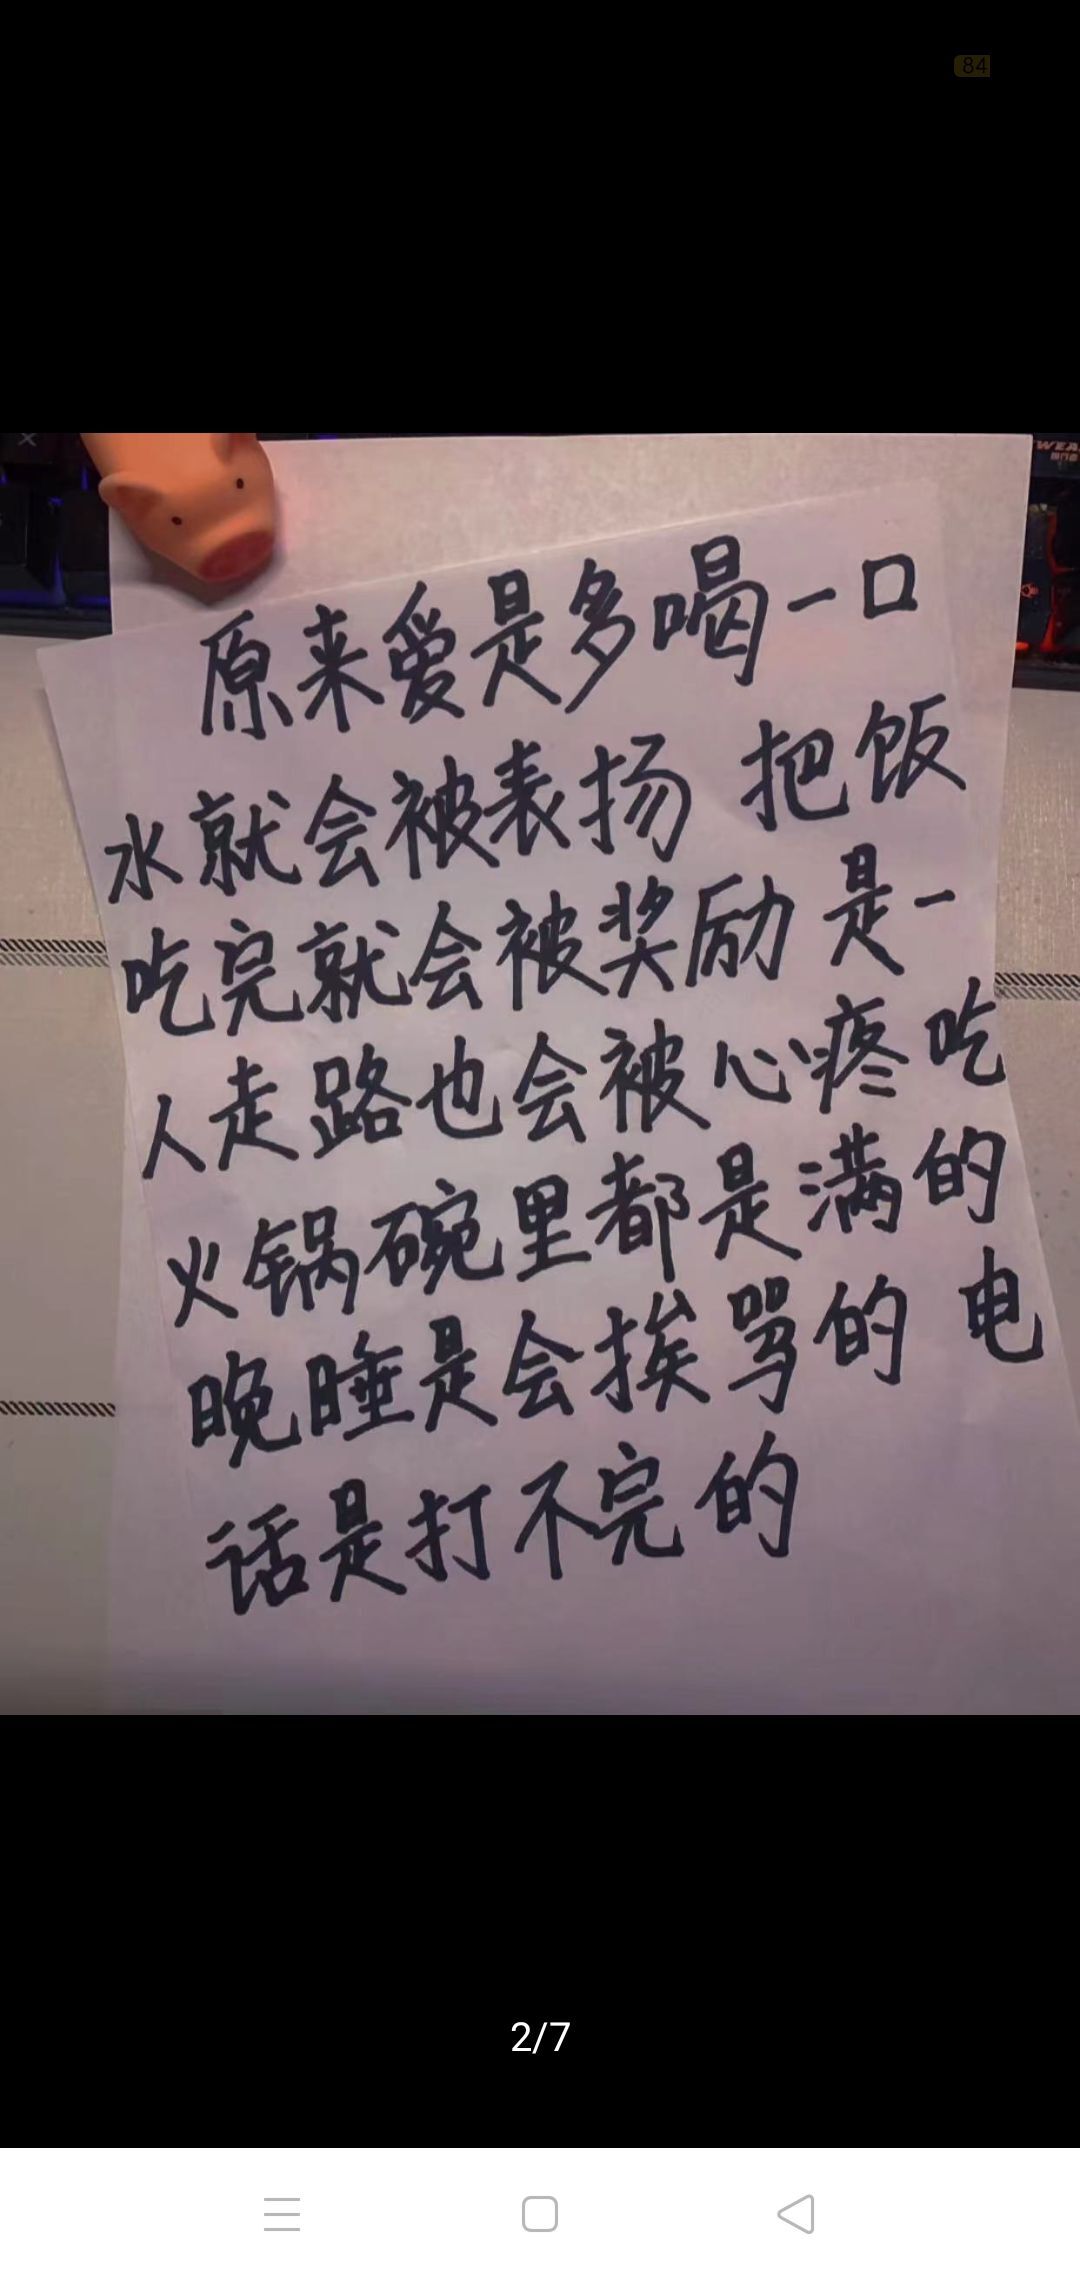 84
WEA
原来爱是多喝一口
水就会被表扬 把饭
吃完就会被奖励 是一
人走路也会被心疼 吃
火锅碗里都是满的
晚睡是会挨骂的 电
话是打不完的
2/7